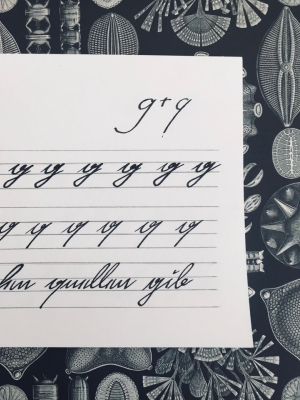 g+q
g g g g g g
q q q q q q
quellen gib